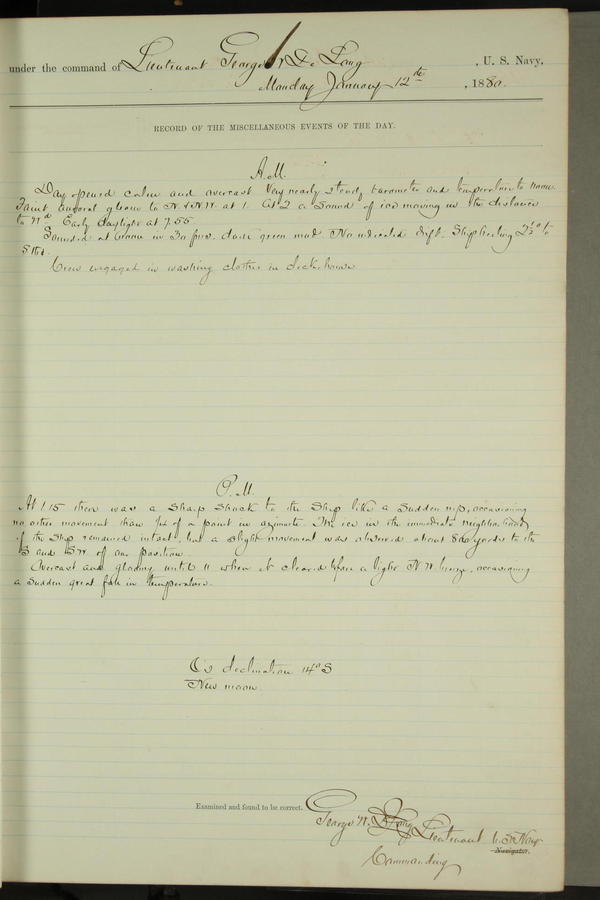 under the command of Lieutenant George W De Long , U. S. Navy,
Monday January 12th , 1880.
RECORD OF THE MISCELLANEOUS EVENTS OF THE DAY.
A.M.
Day opened calm and overcast. Very nearly steady barometer and temperature to noon.
Faint auroral gleam to N. & N.W. at 1. At 2 a sound of ice moving in the distance
to Nd. Early daylight at 7.55.
Sounded at noon in 30 fms. dark green mud. No indicated drift. Ship heeling 2½° to
Stbd.
Crew engaged in washing clothes in deck-house
P.M.
At 1.15 there was a sharp shock to the Ship like a sudden nip, occasioning
no other movement than ¼ of a point in azimuth. The ice in the immediate neighborhood
of the Ship remained intact, but a slight movement was observed about 800 yards to the
S and SW of our position.
Overcast and gloomy until 11 when it cleared before a light N.W. breeze, occasioning
a sudden great fall in temperature.
☾'s declination 14° S
New moon.
Examined and found to be correct.
George W. De Long Lieutenant U.S. Navy
Navigator.
Commanding